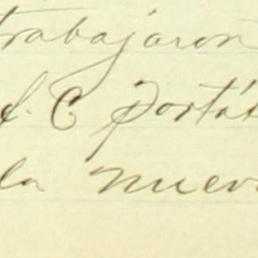 trabajaron
S. C Portát
la nueva